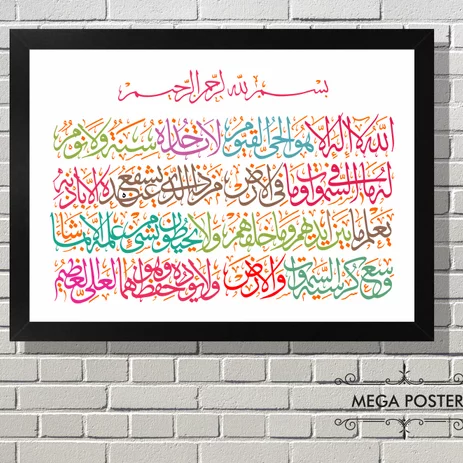 بسم الله الرحمن الرحيم
الله لا إله إلا هو الحي القيوم لا تأخذه سنة ولا نوم
له ما في السموات وما في الأرض من ذا الذي يشفع عنده إلا بإذنه
يعلم ما بين أيديهم وما خلفهم ولا يحيطون بشيء من علمه إلا بما شاء
وسع كرسيه السموات والأرض ولا يؤده حفظهما وهو العلي العظيم
MEGA POSTER